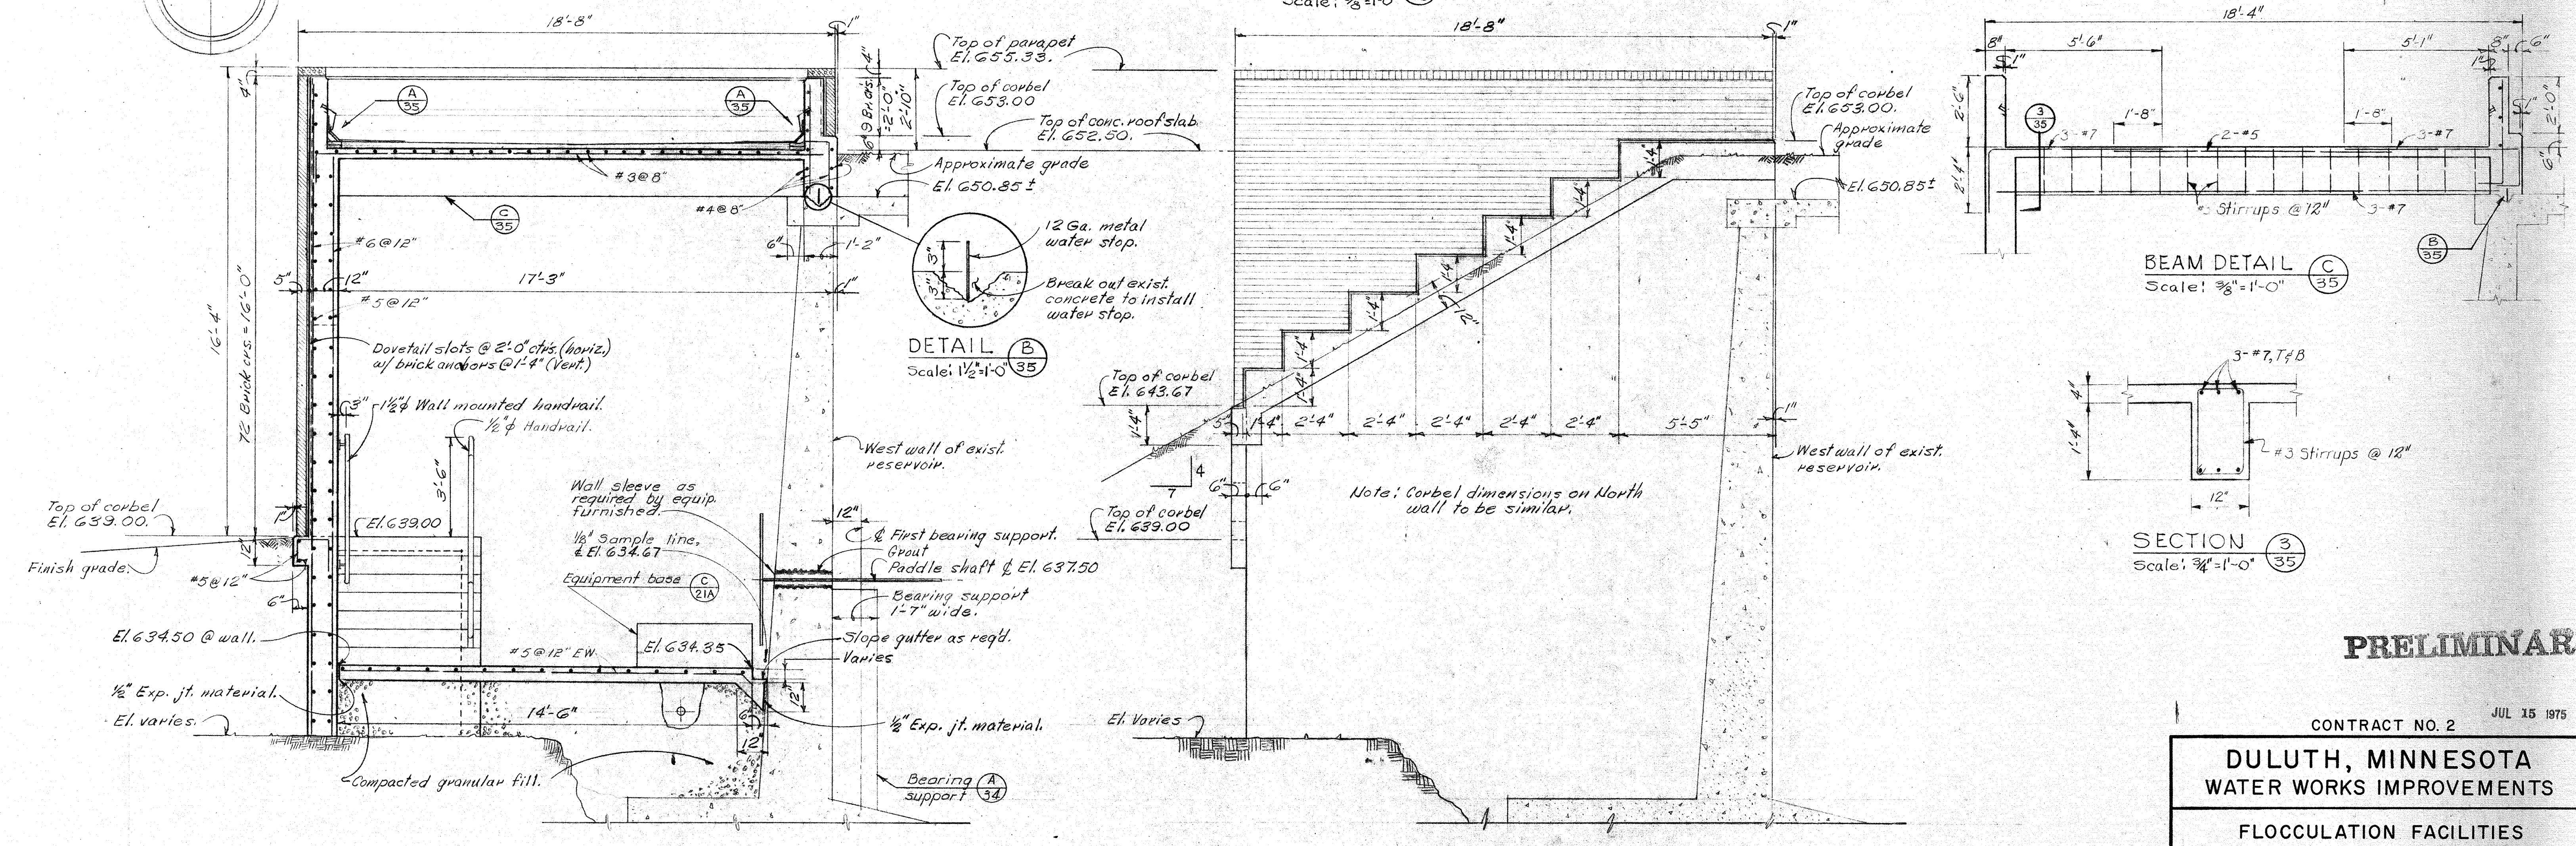 Scale: 3/8"=1'-0"
18'-8"
1"
4"
Top of parapet
El. 655.33.
A
35
A
35
4"
9 Br. crs.
=2'-0"
2'-10"
6"
Top of corbel
El. 653.00
Top of conc. roof slab
El. 652.50.
Approximate grade
El. 650.85±
#3@8"
#4@8"
C
35
6"
1'-2"
#6@12"
5"
12"
17'-3"
1"
#5@12"
16'-4"
72 Brick crs.=16'-0"
Dovetail slots @ 2'-0" ctrs. (horiz.)
w/ brick anchors @ 1'-4" (Vert.)
3"
1½"ϕ Wall mounted handrail.
½"ϕ Handrail.
3'-6"
West wall of exist.
reservoir.
Top of corbel
El. 639.00.
1"
El. 639.00
12"
Finish grade.
#5@12"
6"
Wall sleeve as
required by equip.
furnished.
⅛" Sample line,
℄ El. 634.67
Equipment base
C
21A
12"
℄ First bearing support.
Grout
Paddle shaft ℄ El. 637.50
Bearing support
1'-7" wide.
El. 634.50 @ wall.
#5@12" EW
El. 634.35
Slope gutter as req'd.
Varies
½" Exp. jt. material.
El. varies.
14'-6"
6"
12"
12"
½" Exp. jt. material.
Compacted granular fill.
Bearing
support
A
34
3"
3"
12 Ga. metal
water stop.
Break out exist.
concrete to install
water stop.
DETAIL
B
35
Scale: 1½"=1'-0"
18'-8"
1"
Top of corbel
El. 653.00.
Approximate
grade
El. 650.85±
1'-4"
1'-4"
1'-4"
1'-4"
1'-4"
1'-4"
1'-4"
2'
Top of corbel
El. 643.67
1'-4"
5"
1'-4"
2'-4"
2'-4"
2'-4"
2'-4"
2'-4"
5'-5"
1"
4
7
6"
6"
West wall of exist.
reservoir.
Note: Corbel dimensions on North
wall to be similar.
Top of corbel
El. 639.00
El. Varies
18'-4"
8"
5'-6"
5'-1"
8"
6"
1"
1"
2'-6"
2'-4"
3
35
3-#7
1'-8"
2-#5
1'-8"
3-#7
1"
2'-0"
6"
Stirrups @ 12"
3-#7
B
35
BEAM DETAIL
C
35
Scale: 3/8"=1'-0"
3-#7, T&B
4"
1'-4"
#3 Stirrups @ 12"
12"
SECTION
3
35
Scale: 3/4"=1'-0"
PRELIMINAR
JUL 15 1975
CONTRACT NO. 2
DULUTH, MINNESOTA
WATER WORKS IMPROVEMENTS
FLOCCULATION FACILITIES